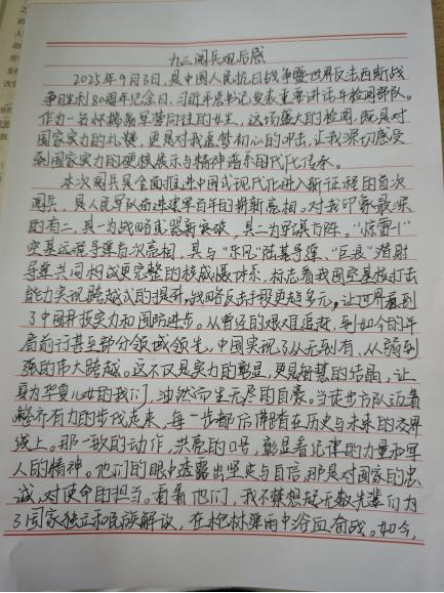 九三阅兵观后感
2025年9月3日,是中国人民抗日战争暨世界反法西斯战
争胜利80周年纪念日,习近平总书记发表重要讲话并检阅部队。
作为一名怀揣着军营向往的女生,这场盛大的检阅,既是对
国家实力的礼赞,更是对我逐梦初心的冲击,让我深切感受
到国家实力的硬核展示与精神谱系的代代传承。
本次阅兵是全面推进中国式现代化进入新征程的首次
阅兵,是人民军队奋进建军百年的崭新亮相。对我印象最深
的有二,其一为战略武器新突破,其二为军旗方阵。"惊雷-1"
空基远程导弹首次亮相,其与"东风"陆基导弹、"巨浪"潜射
导弹共同构成更完整的核威慑体系,标志着我国空基核打击
能力实现跨越式的提升,战略反击手段更趋多元,让世界看到
了中国科技实力和国防进步。从曾经的艰难追赶,到如今的并
肩前行甚至部分领域领先,中国实现了从无到有、从弱到
强的伟大跨越。这不仅是实力的彰显,更是智慧的结晶,让
身为华夏儿女的我们,油然而生无尽的自豪。当徒步方队迈着
整齐有力的步伐走来,每一步都仿佛踏在历史与未来的交界
线上。那一致的动作,洪亮的口号,彰显着纪律的力量和军
人的精神。他们的眼中透露出坚定与自信,那是对国家的忠
诚,对使命的担当。看着他们,我不禁想起无数先辈们为
了国家独立和民族解放,在枪林弹雨中浴血奋战。如今,